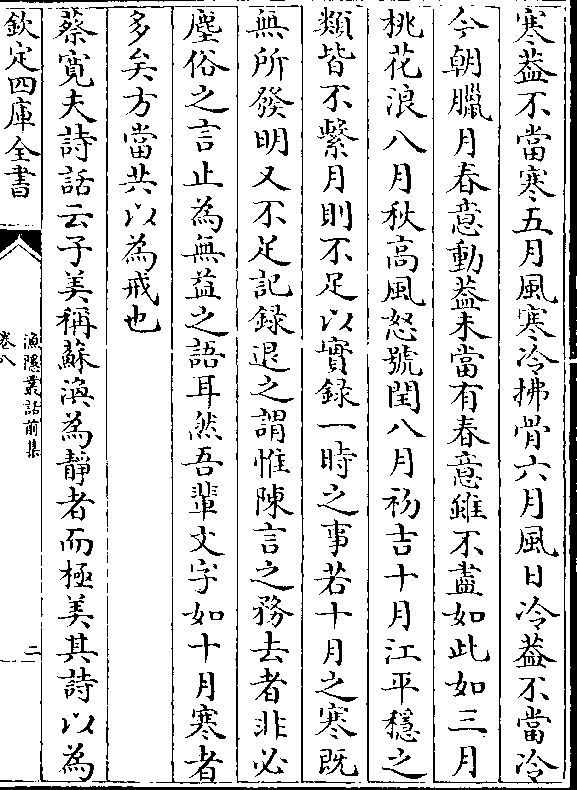 寒葢不當寒五月風寒冷拂骨六月風日冷葢不當冷
今朝臘月春意動葢未當有春意雖不盡如此如三月
桃花浪八月秋高風怒號閏八月初吉十月江平穩之
類皆不繫月則不足以實録一時之事若十月之寒既
無所發明又不足記録退之謂惟陳言之務去者非必
塵俗之言止為無益之語耳然吾輩文字如十月寒者
多矣方當共以為戒也
蔡寛夫詩話云子美稱蘇渙為靜者而極美其詩以為
欽定四庫全書
漁隱叢話前集
卷八
二